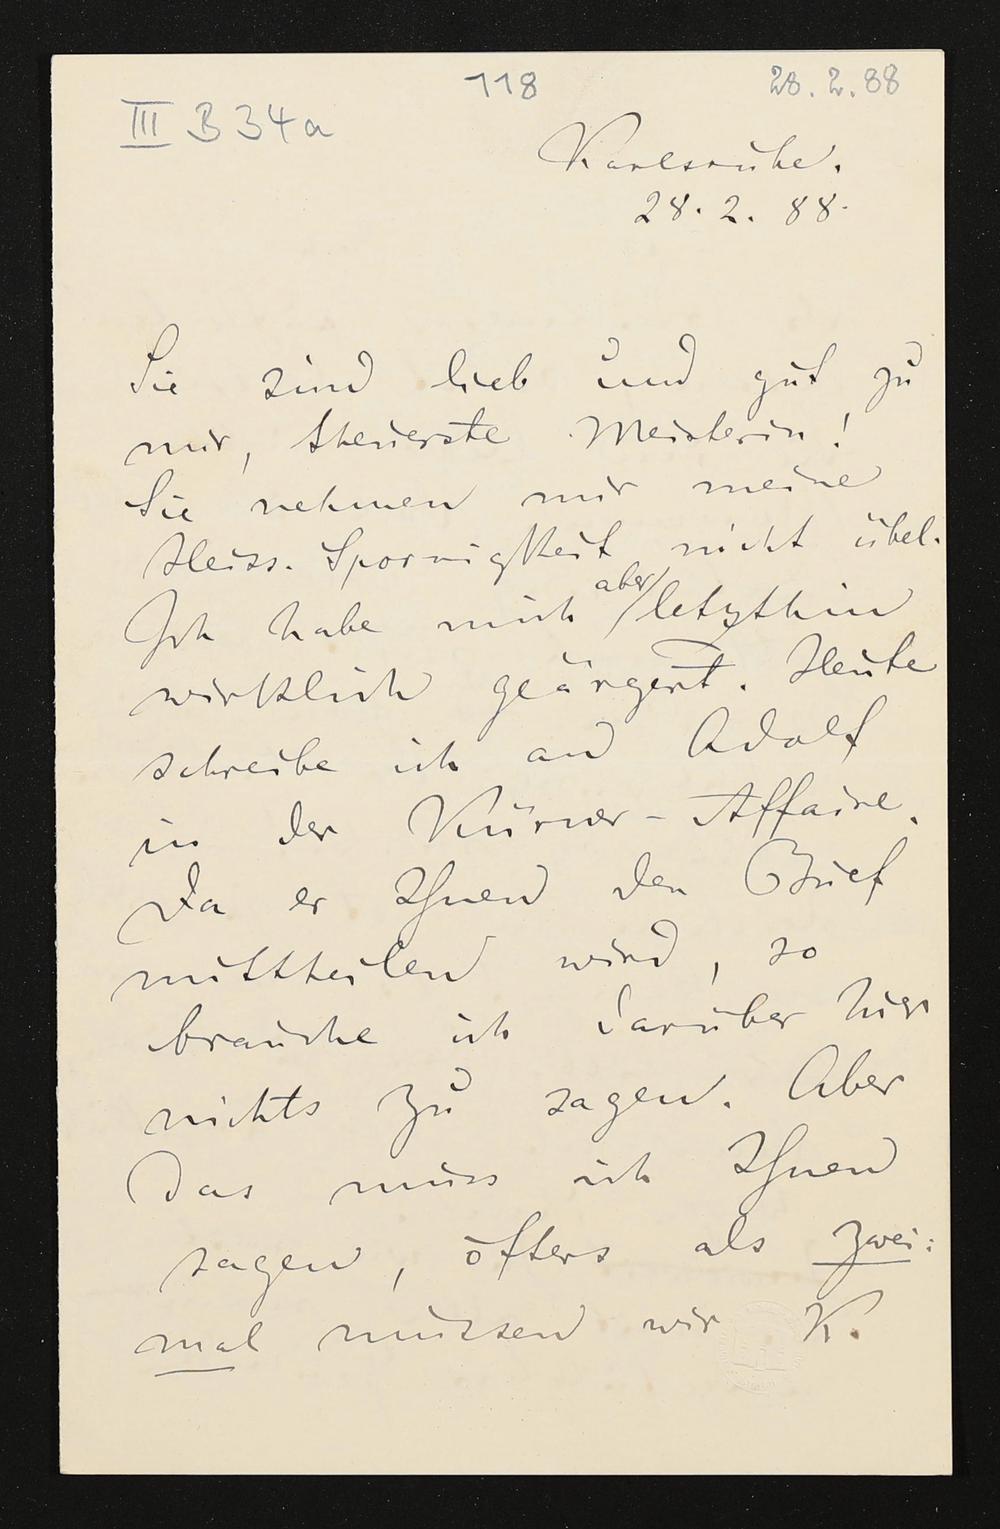 118
28.2.88
III B 34a
Karlsruhe.
28. 2. 88.
Sie sind lieb und gut zu
mir, theuerste Meisterin!
Sie nehmen mir meine
Heiss-Spornigkeit nicht übel.
Ich habe mich aber letzthin
wirklich geärgert. Heute
schreibe ich an Adolf
in der Kürner-Affaire.
Da er Ihnen den Brief
mittheilen wird, so
brauche ich darüber hier
nichts zu sagen. Aber
Das muss ich Ihnen
sagen, öfters als zwei:
mal müssen wir K.